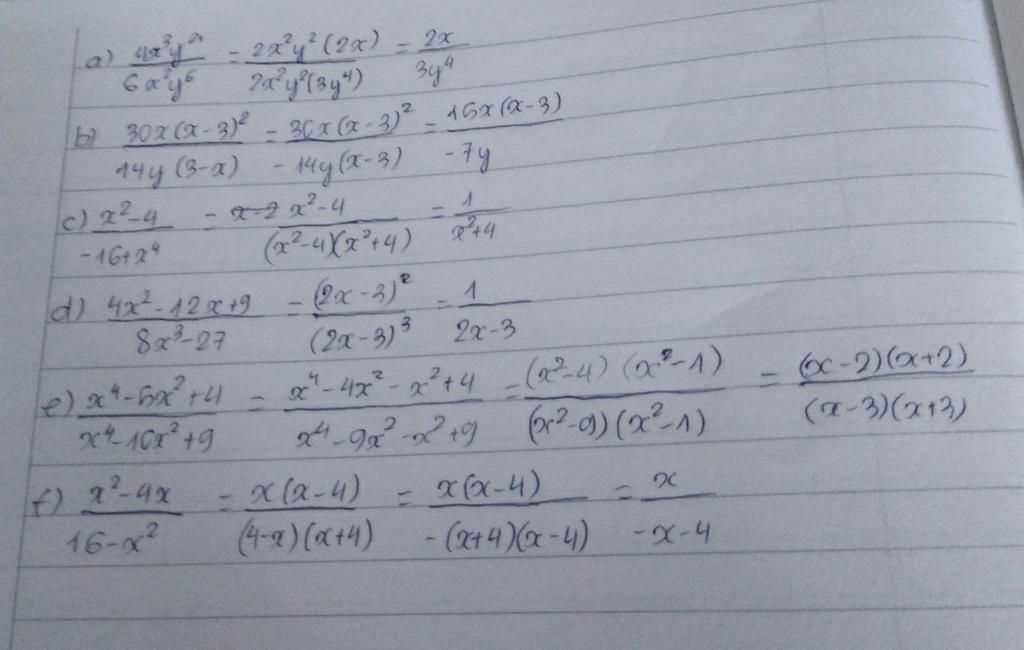 a) 4x³y²/6x²y⁶ = 2x²y²(2x)/2x²y²(3y⁴) = 2x/3y⁴
b) 30x(x-3)²/14y(3-x) = 30x(x-3)²/-14y(x-3) = 15x(x-3)/-7y
c) x²-4/-16+x⁴ = x²-4/(x²-4)(x²+4) = 1/x²+4
d) 4x²-12x+9/8x³-27 = (2x-3)²/(2x-3)³ = 1/2x-3
e) x⁴-5x²+4/x⁴-10x²+9 = x⁴-4x²-x²+4/x⁴-9x²-x²+9 = (x²-4)(x²-1)/(x²-9)(x²-1) = (x-2)(x+2)/(x-3)(x+3)
f) x²-4x/16-x² = x(x-4)/(4-x)(x+4) = x(x-4)/-(x+4)(x-4) = x/-x-4